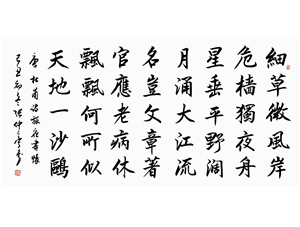 細草微風岸
危檣獨夜舟
星垂平野闊
月涌大江流
名豈文章著
官應老病休
飄飄何所似
天地一沙鷗
唐杜甫詩旅夜書懷
己丑